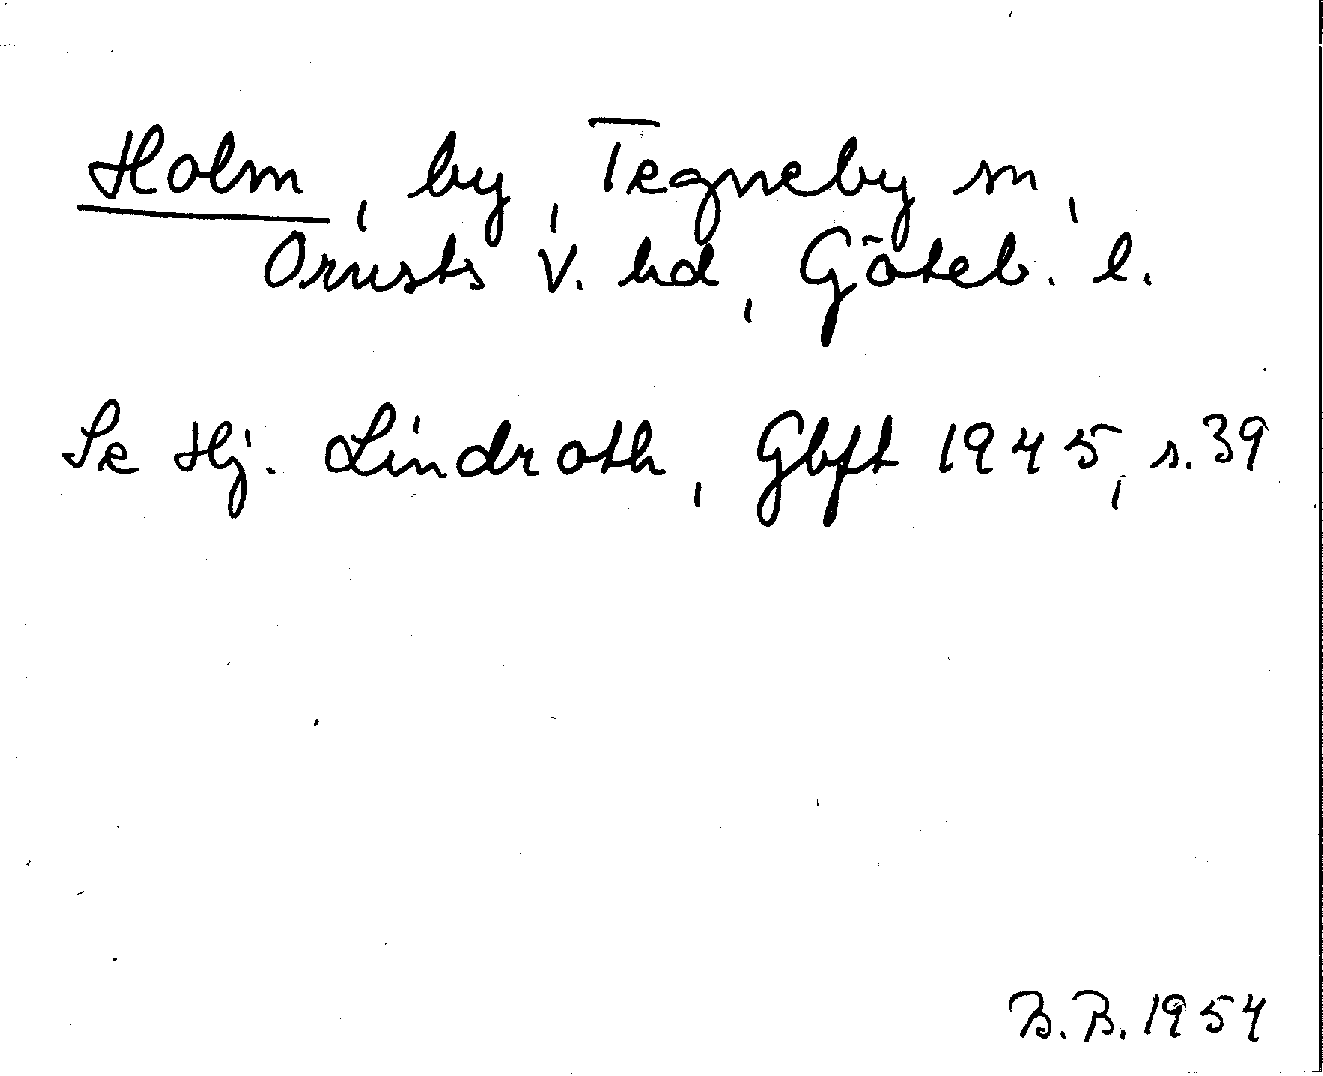 Holm, by, Tegneby sn,
Orusts V. hd, Göteb. l.
Se Hj. Lindroth, Gbft 1945, s. 39
B.B. 1954